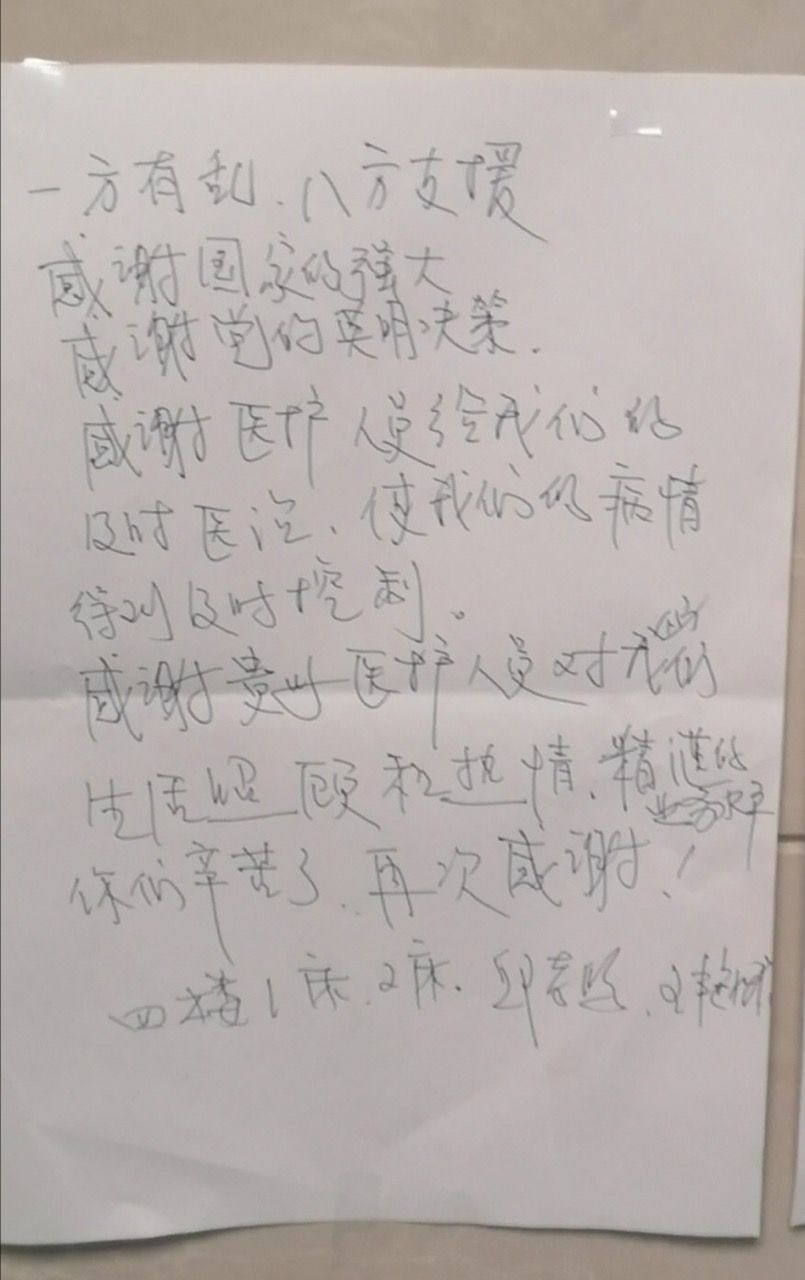 一方有乱、八方支援
感谢国家的强大
感谢党的英明决策.
感谢医护人员给我们的
及时医治、使我们的病情
得到及时控制。
感谢 医护人员对我们的
生活照顾和热情、精湛的
业务水平
你们辛苦了、再次感谢!
四楼1床、2床.